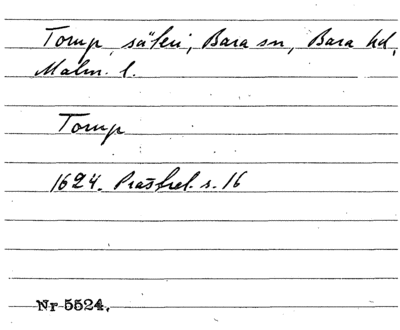 Torup, säteri, Bara sn, Bara hd,
Malm. l.
Torup
1624. Prästrel. s. 16
Nr 5524.